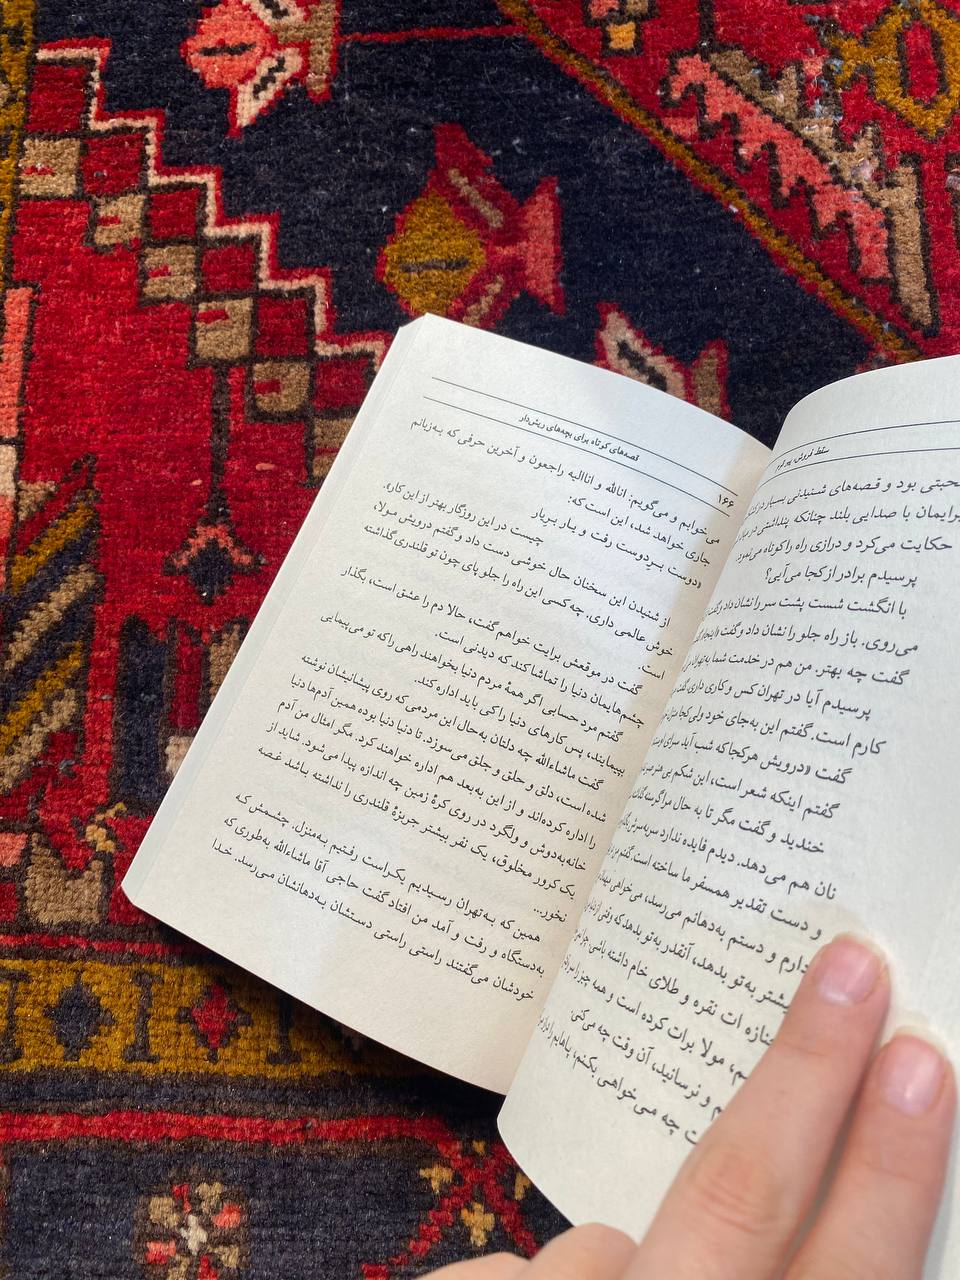 محبتی بود و قصه‌های شنیدنی بسیار
برایمان با صدایی بلند چنانکه پنداشتی در
حکایت می‌کرد و درازی راه را کوتاه می‌نمود.
پرسیدم برادر از کجا می‌آیی؟
با انگشت شست پشت سر را نشان داد و گفت
می‌روی. باز راه جلو را نشان داد و گفت
گفت چه بهتر. من هم در خدمت شما به تهران
پرسیدم آیا در تهران کس و کاری داری. گفت
کارم است. گفتم این به‌جای خود ولی کجا منزل
گفت «درویش هرکجا که شب آید سرای اوست
گفتم اینکه شعر است، این شکم بی هنر
خندید و گفت مگر تا به حال مرا گرسنه
نان هم می‌دهد. دیدم فایده ندارد سربه‌سرش
و دست تقدیر همسفر ما ساخته است. گفتم
دارم و دستم به‌دهانم می‌رسد، می‌خواهی
بیشتر به تو بدهد، آنقدر به تو بدهد که وقتی
جنازه ات نقره و طلای خام داشته باشی
مولا برات کرده است و همه چیز را
و نرسانید، آن وقت چه می‌کنی.
چه می‌خواهی بکنم، پاهایم را
۱۶۶
قصه‌های کوتاه برای بچه‌های ریش‌دار
می‌خوابم و می‌گویم: اناللّه و انا الیه راجعون و آخرین حرفی که به‌زبانم
جاری خواهد شد، این است که:
«دوست بر دوست رفت و یار بر یار
چیست در این روزگار بهتر از این کار».
از شنیدن این سخنان حال خوشی دست داد و گفتم درویش مولا،
خوش عالمی داری، چه کسی این راه را جلو پای چون تو قلندری گذاشته
است.
گفت در موقعش برایت خواهم گفت، حالا دم را عشق است، بگذار
چشم‌هایمان دنیا را تماشا کند که دیدنی است.
گفتم مرد حسابی اگر همهٔ مردم دنیا بخواهند راهی را که تو می‌پیمایی
بپیمایند، پس کارهای دنیا را کی باید اداره کند.
گفت ماشاءاللّه چه دلتان به‌حال این مردمی که روی پیشانیشان نوشته
شده است، دلق و حلق و جلق می‌سوزد. تا دنیا دنیا بوده همین آدم‌ها دنیا
را اداره کرده‌اند و از این به‌بعد هم اداره خواهند کرد. مگر امثال من آدم
خانه‌به‌دوش و ولگرد در روی کرهٔ زمین چه اندازه پیدا می‌شود. شاید از
یک کرور مخلوق، یک نفر بیشتر جربزهٔ قلندری را نداشته باشد غصه
نخور...
همین که به‌تهران رسیدیم یکراست رفتیم به‌منزل. چشمش که
به‌دستگاه و رفت و آمد من افتاد گفت حاجی آقا ماشاءاللّه به‌طوری که
خودشان می‌گفتند راستی راستی دستشان به‌دهانشان می‌رسد. خدا